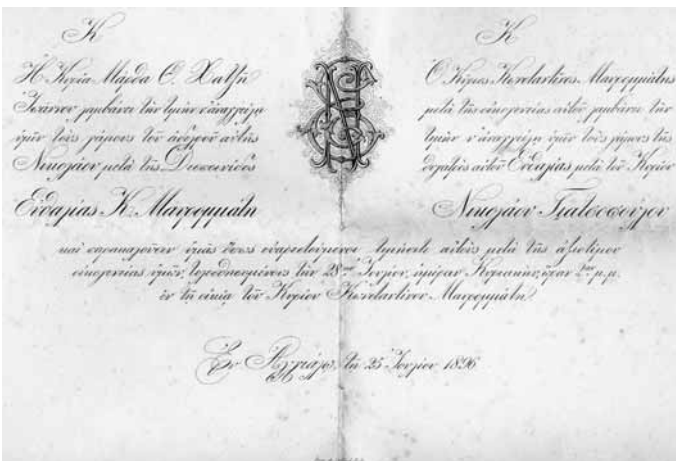 Κ
Ἡ Κυρία Μάρθα Θ. Χατζῆ
Ἰωάννου λαμβάνει τὴν τιμὴν ν' ἀναγγείλῃ
ὑμῖν τοὺς γάμους τοῦ ἀνεψιοῦ αὐτῆς
Νικολάου μετὰ τῆς Δεσποινίδος
Εὐθαλίας Κ. Μαυρομμάτη
Κ
Ὁ Κύριος Κωνσταντῖνος Μαυρομμάτης
μετὰ τῆς οἰκογενείας αὐτοῦ λαμβάνει τὴν
τιμὴν ν' ἀναγγείλῃ ὑμῖν τοὺς γάμους τῆς
θυγατρὸς αὐτοῦ Εὐθαλίας μετὰ τοῦ Κυρίου
Νικολάου
καὶ παρακαλοῦσιν ὑμᾶς ὅπως εὐαρεστούμενοι τιμήσητε αὐτοὺς μετὰ τῆς ἀξιοτίμου
οἰκογενείας ὑμῶν, τελουμένους τὴν 28ην Ἰουλίου, ἡμέραν Κυριακήν, ὥραν 2αν μ.μ.
ἐν τῇ οἰκίᾳ τοῦ Κυρίου Κωνσταντίνου Μαυρομμάτη.
Ἐν Ἀγχιάλῳ, τῇ 25 Ἰουλίου 1896